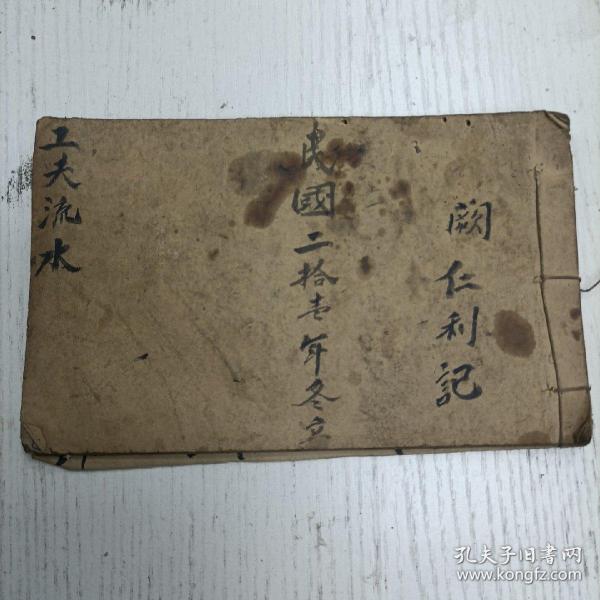 闕仁利記
民國二拾壹年冬立
工夫流水
孔夫子旧书网
www.kongfz.com